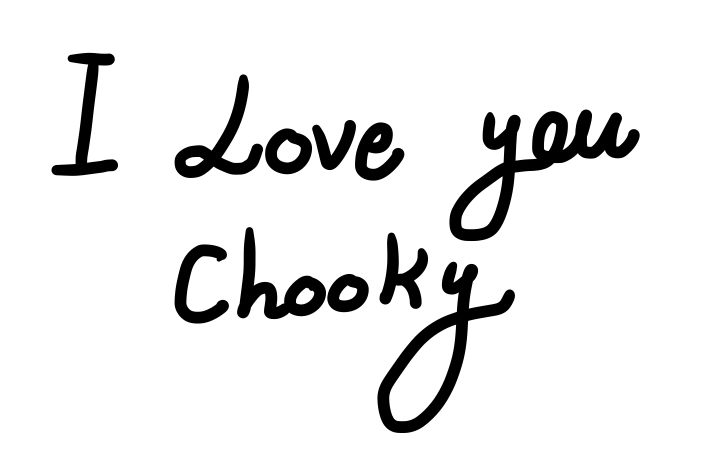 I Love you
Chooky